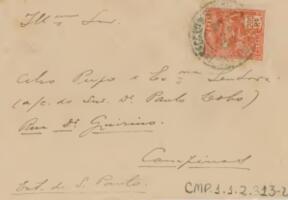 Ill.mo Snr.
Celso Penso e Ex.ma Senhora
(a/c. do Snr. Dr. Paulo Lobo)
Rua Dr. Quirino.
Campinas
Est. de S. Paulo.
CMP.1.1.2.313-2